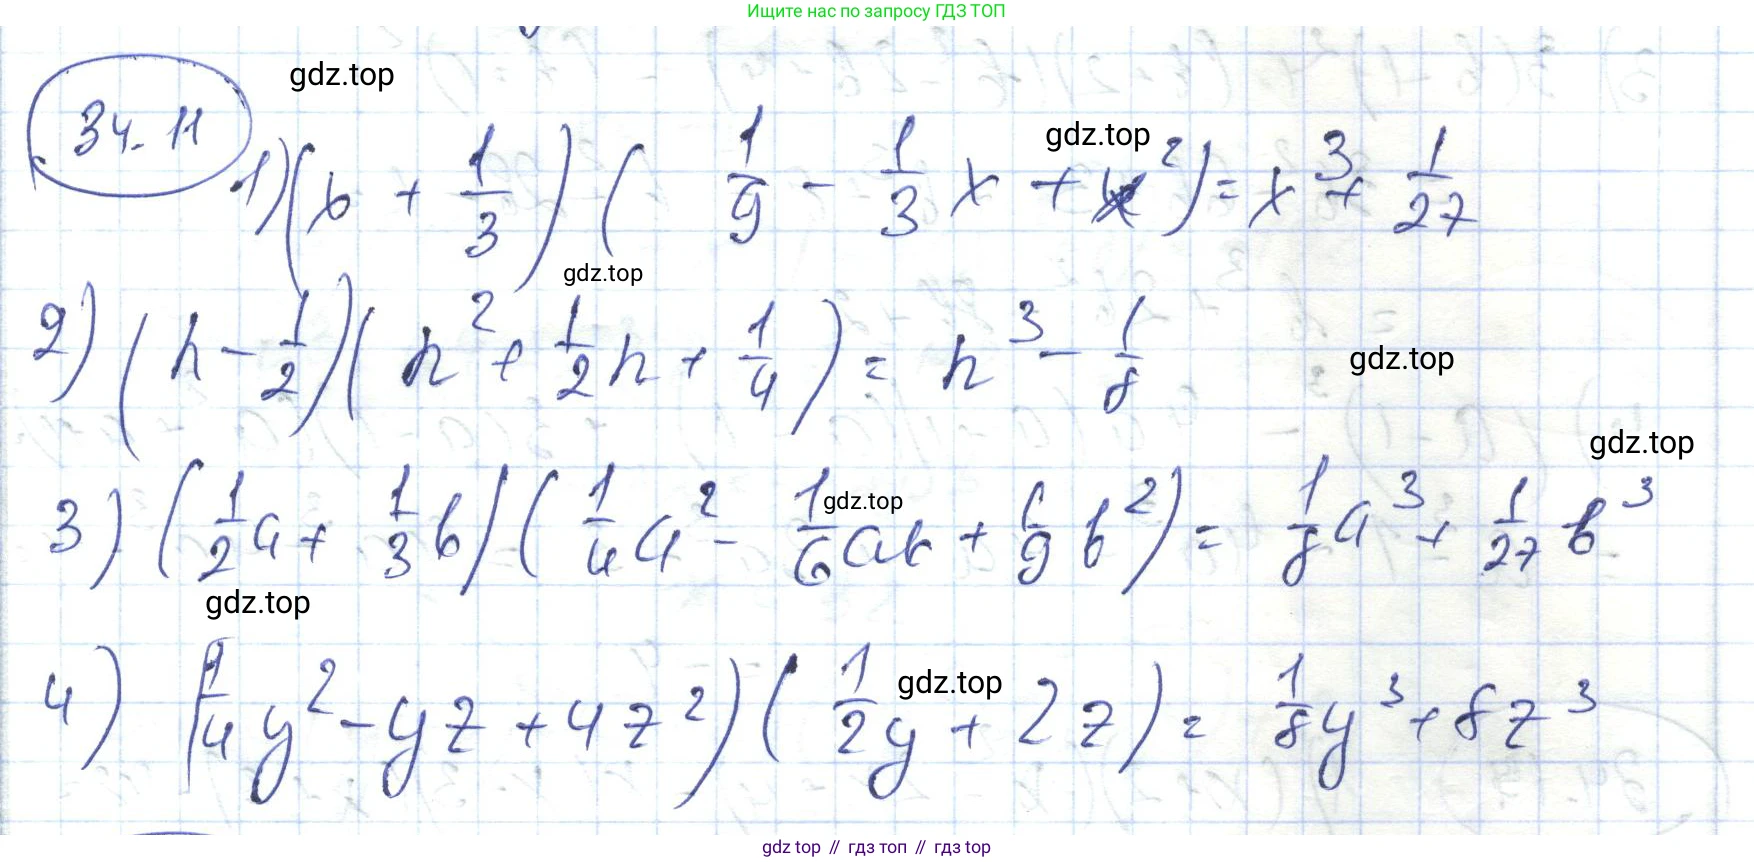 Ищите нас по запросу ГДЗ ТОП
34.11
gdz.top
gdz.top
1) (x + 1/3) ( 1/9 - 1/3 x + x²) = x³ + 1/27
gdz.top
2) (n - 1/2) (n² + 1/2 n + 1/4) = n³ - 1/8
gdz.top
gdz.top
3) (1/2 a + 1/3 b) (1/4 a² - 1/6 ab + 1/9 b²) = 1/8 a³ + 1/27 b³
gdz.top
gdz.top
4) (1/4 y² - yz + 4z²) (1/2 y + 2z) = 1/8 y³ + 8z³
gdz.top
gdz top // гдз топ // gdz top